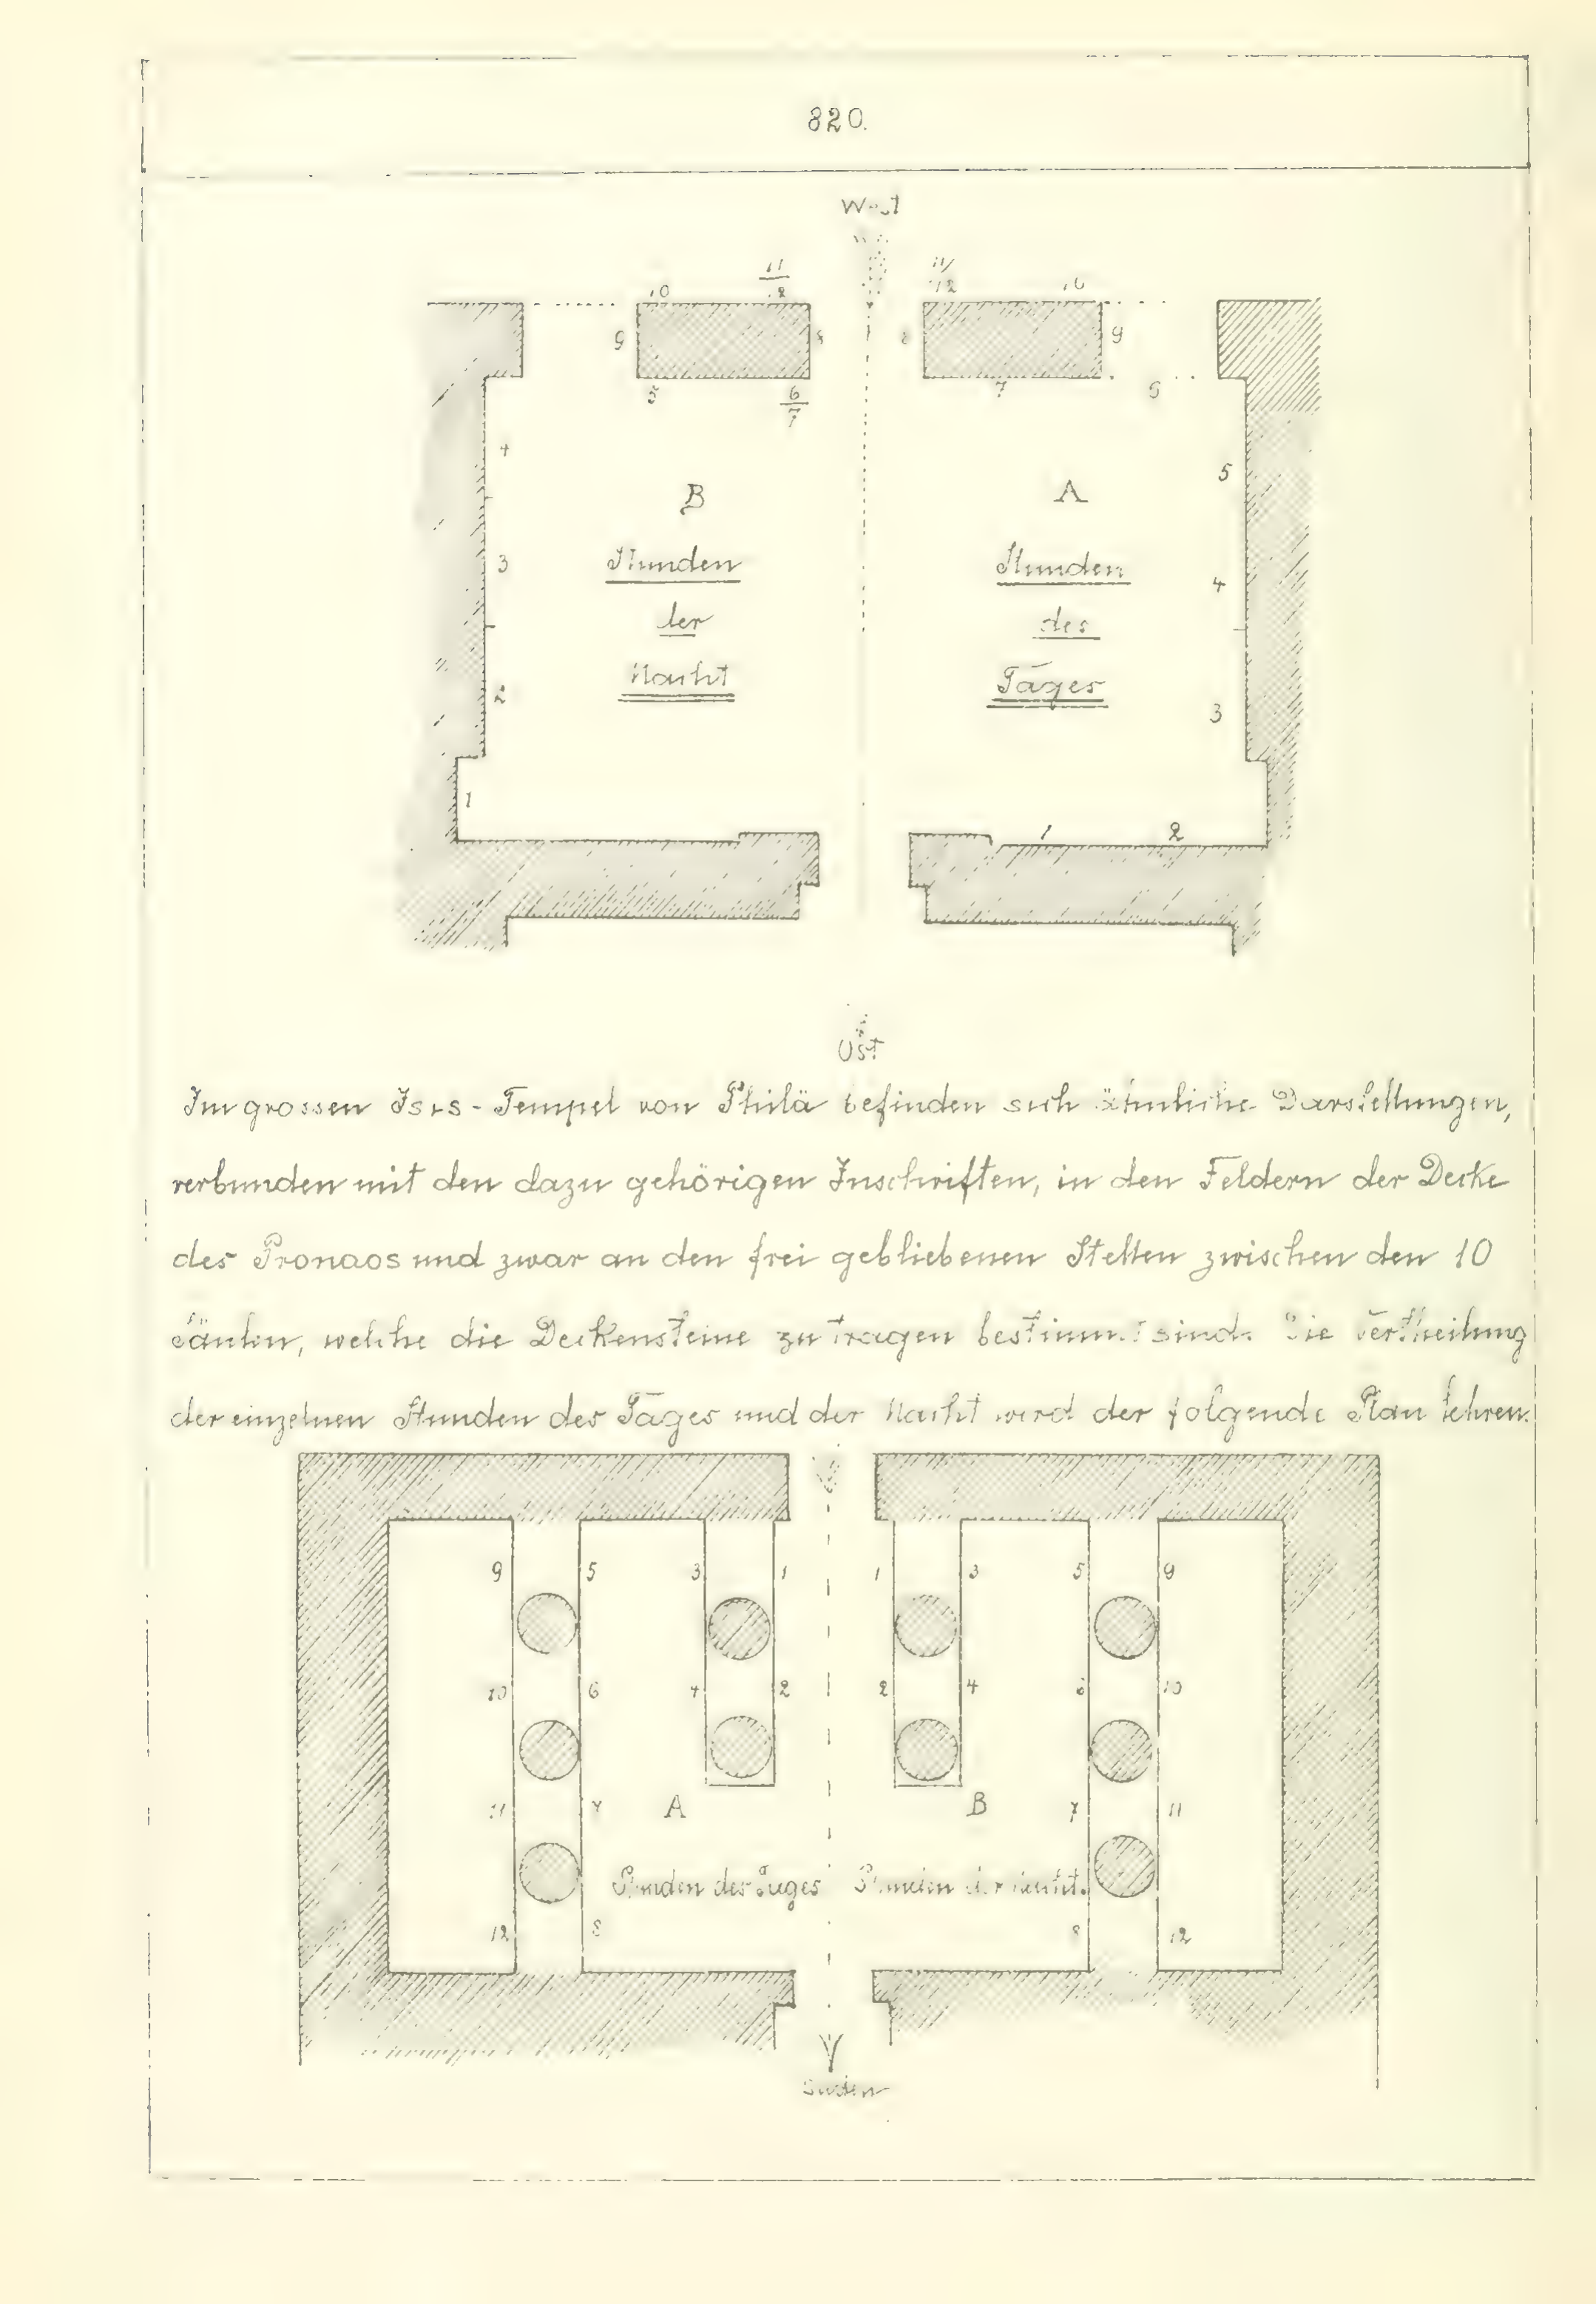 820.
West
11/12 10
10 11/12
9 8 8 9
5 6/7 7 6
4 5
B A
3 Stunden Stunden 4
der des
2 Nacht Tages 3
1 1 2
Ost
Im grossen Isis-Tempel von Philä befinden sich ähnliche Darstellungen,
verbunden mit den dazu gehörigen Inschriften, in den Feldern der Decke
des Pronaos und zwar an den frei gebliebenen Stellen zwischen den 10
Säulen, welche die Deckensteine zu tragen bestimmt sind. Die Vertheilung
der einzelnen Stunden des Tages und der Nacht wird der folgende Plan lehren.
9 5 3 1 1 3 5 9
10 6 4 2 2 4 6 10
11 7 A B 7 11
Stunden des Tages Stunden der Nacht.
12 8 8 12
Süden